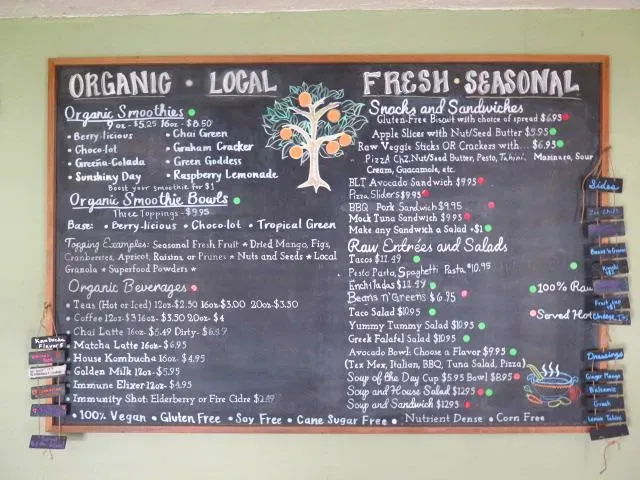 ORGANIC • LOCAL
Organic Smoothies
9oz - $5.25 16oz - $8.50
• Berry-licious
• Choco-lot
• Greeña-Colada
• Sunshiny Day
• Chai Green
• Graham Cracker
• Green Goddess
• Raspberry Lemonade
Boost your smoothie for $1
Organic Smoothie Bowls
Three Toppings - $9.95
Base: • Berry-licious • Choco-lot • Tropical Green
Topping Examples: Seasonal Fresh Fruit * Dried Mango, Figs,
Cranberries, Apricot, Raisins, or Prunes * Nuts and Seeds * Local
Granola * Superfood Powders *
Organic Beverages
• Teas (Hot or Iced) 12oz-$2.50 16oz-$3.00 20oz-$3.50
• Coffee 12oz-$3 16oz-$3.50 20oz-$4
• Chai Latte 16oz-$5.49 Dirty-
• Matcha Latte 16oz-$6.95
• House Kombucha 16oz-$4.95
• Golden Milk 12oz-$5.95
• Immune Elixer 12oz-$4.95
• Immunity Shot: Elderberry or Fire Cidre
FRESH • SEASONAL
Snacks and Sandwiches
Gluten-Free Biscuit with choice of spread $6.95
Apple Slices with Nut/Seed Butter $5.95
Raw Veggie Sticks OR Crackers with... $6.95
Pizza Chz, Nut/Seed Butter, Pesto, Tahini, Marinara, Sour
Cream, Guacamole, etc.
BLT Avocado Sandwich $9.95
Pizza Sliders $9.95
BBQ Pork Sandwich $9.95
Mock Tuna Sandwich $9.95
Make any Sandwich a Salad +$1
Raw Entrées and Salads
Tacos $11.49
Pesto Pasta, Spaghetti Pasta $10.95
Enchiladas $11.49
Beans n' Greens $6.95
Taco Salad $10.95
Yummy Tummy Salad $10.95
Greek Falafel Salad $10.95
Avocado Bowl: Choose a Flavor $9.95
(Tex Mex, Italian, BBQ, Tuna Salad, Pizza)
Soup of the Day Cup $5.95 Bowl $8.95
Soup and House Salad $12.95
Soup and Sandwich $12.95
100% Raw
Served Hot
• 100% Vegan • Gluten Free • Soy Free • Cane Sugar Free • Nutrient Dense • Corn Free
Kombucha
Flavors
Sides
Dressings
Ginger Mango
Balsamic
Greek
Lemon Tahini